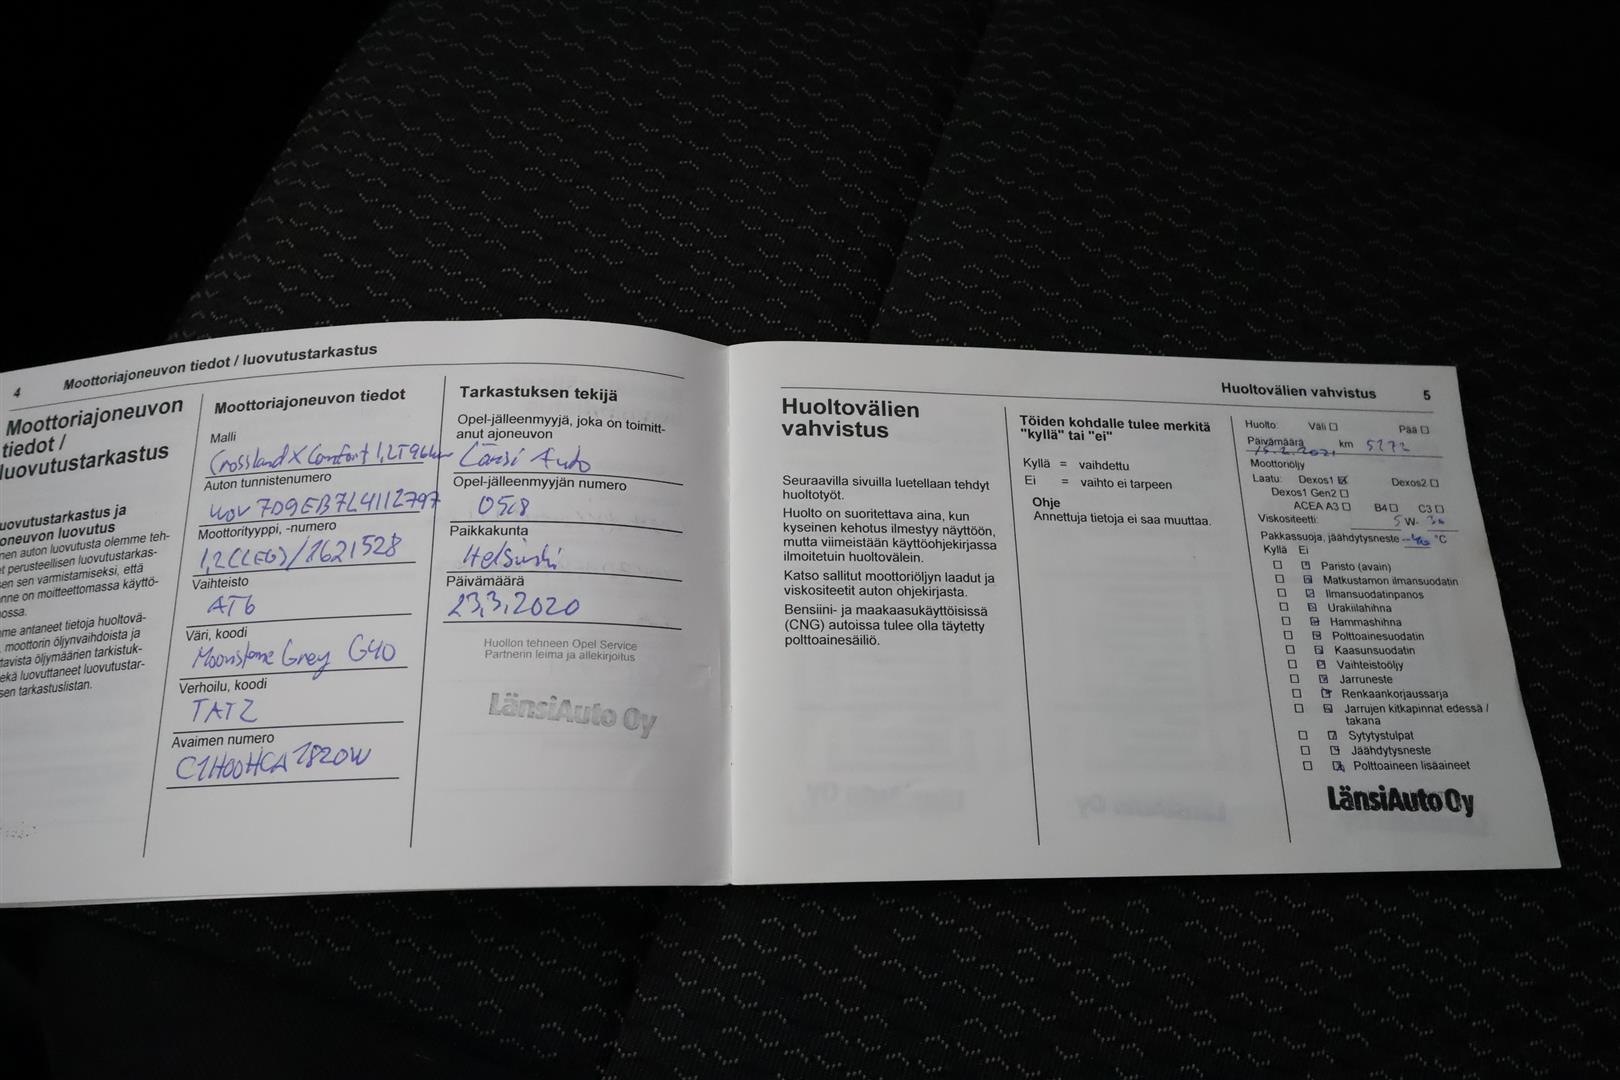 4 Moottoriajoneuvon tiedot / luovutustarkastus
Moottoriajoneuvon
tiedot /
luovutustarkastus
uovutustarkastus ja
oneuvon luovutus
nen auton luovutusta olemme teh-
t perusteellisen luovutustarkas-
sen sen varmistamiseksi, että
nne on moitteettomassa käyttö-
nossa.
me antaneet tietoja huoltovä-
, moottorin öljynvaihdoista ja
tavista öljymäärien tarkistuk-
ekä luovuttaneet luovutustar-
sen tarkastuslistan.
Moottoriajoneuvon tiedot
Malli
Crossland X Comfort 1,2T 96kw
Auton tunnistenumero
W0V7D9EB7L4112797
Moottorityyppi, -numero
1,2 (LEG) / 1621528
Vaihteisto
AT6
Väri, koodi
Moonstone Grey G40
Verhoilu, koodi
TATZ
Avaimen numero
C1H00HCA1820W
Tarkastuksen tekijä
Opel-jälleenmyyjä, joka on toimitt-
anut ajoneuvon
Länsi Auto
Opel-jälleenmyyjän numero
Paikkakunta
Helsinki
Päivämäärä
23.3.2020
Huollon tehneen Opel Service
Partnerin leima ja allekirjoitus
LänsiAuto Oy
Huoltovälien vahvistus 5
Huoltovälien
vahvistus
Seuraavilla sivuilla luetellaan tehdyt
huoltotyöt.
Huolto on suoritettava aina, kun
kyseinen kehotus ilmestyy näyttöön,
mutta viimeistään käyttöohjekirjassa
ilmoitetuin huoltovälein.
Katso sallitut moottoriöljyn laadut ja
viskositeetit auton ohjekirjasta.
Bensiini- ja maakaasukäyttöisissä
(CNG) autoissa tulee olla täytetty
polttoainesäiliö.
Töiden kohdalle tulee merkitä
"kyllä" tai "ei"
Kyllä = vaihdettu
Ei = vaihto ei tarpeen
Ohje
Annettuja tietoja ei saa muuttaa.
Huolto: Väli Pää
Päivämäärä km 5172
15.2.2021
Moottoriöljy
Laatu: Dexos1 Dexos2
Dexos1 Gen2
ACEA A3 B4 C3
Viskositeetti: 5 W- 30
Pakkassuoja, jäähdytysneste -40 °C
Kyllä Ei
Paristo (avain)
Matkustamon ilmansuodatin
Ilmansuodatinpanos
Urakiilahihna
Hammashihna
Polttoainesuodatin
Kaasunsuodatin
Vaihteistoöljy
Jarruneste
Renkaankorjaussarja
Jarrujen kitkapinnat edessä /
takana
Sytytystulpat
Jäähdytysneste
Polttoaineen lisäaineet
LänsiAuto Oy